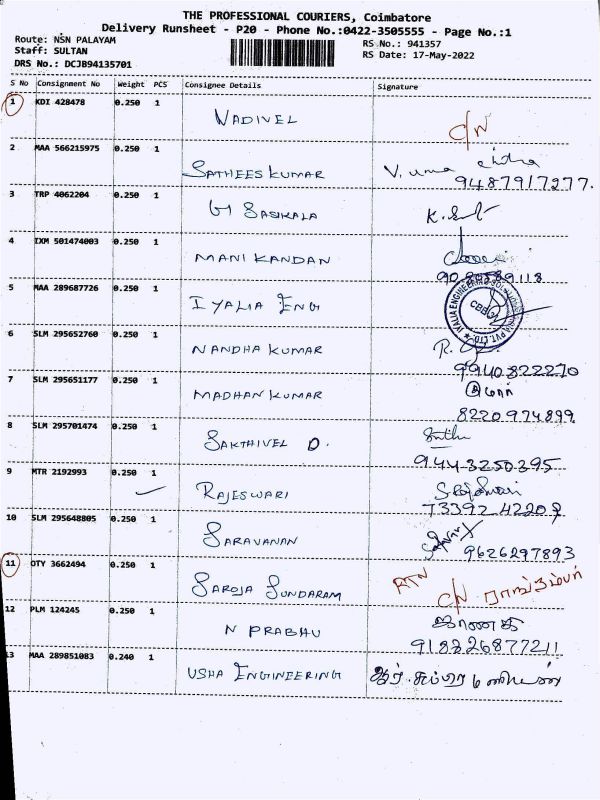 THE PROFESSIONAL COURIERS, Coimbatore
Delivery Runsheet - P20 - Phone No.:0422-3505555 - Page No.:1
Route: NSN PALAYAM
Staff: SULTAN
DRS No.: DCJB94135701
RS No.: 941357
RS Date: 17-May-2022
S No Consignment No Weight PCS Consignee Details Signature
1 KDI 428478 0.250 1 VADIVEL C/N
2 MAA 566215975 0.250 1 SATHEESKUMAR V. uma chitra
9487917277.
3 TRP 4062204 0.250 1 G SASIKALA
4 IXM 501474003 0.250 1 MANIKANDAN
5 MAA 289687726 0.250 1 IYALIA ENG
6 SLM 295652760 0.250 1 NANDHA KUMAR
9940822270
7 SLM 295651177 0.250 1 MADHAN KUMAR
8220974899.
8 SLM 295701474 0.250 1 SAKTHIVEL D.
944-3250395
9 MTR 2192993 0.250 1 RAJESWARI
73392 42209
10 SLM 295648805 0.250 1 SARAVANAN
9626297893
11 OTY 3662494 0.250 1 SAROJA SUNDARAM RTN C/N
12 PLM 124245 0.250 1 N PRABHU ஜானகி
13 MAA 289851083 0.240 1 USHA ENGINEERING